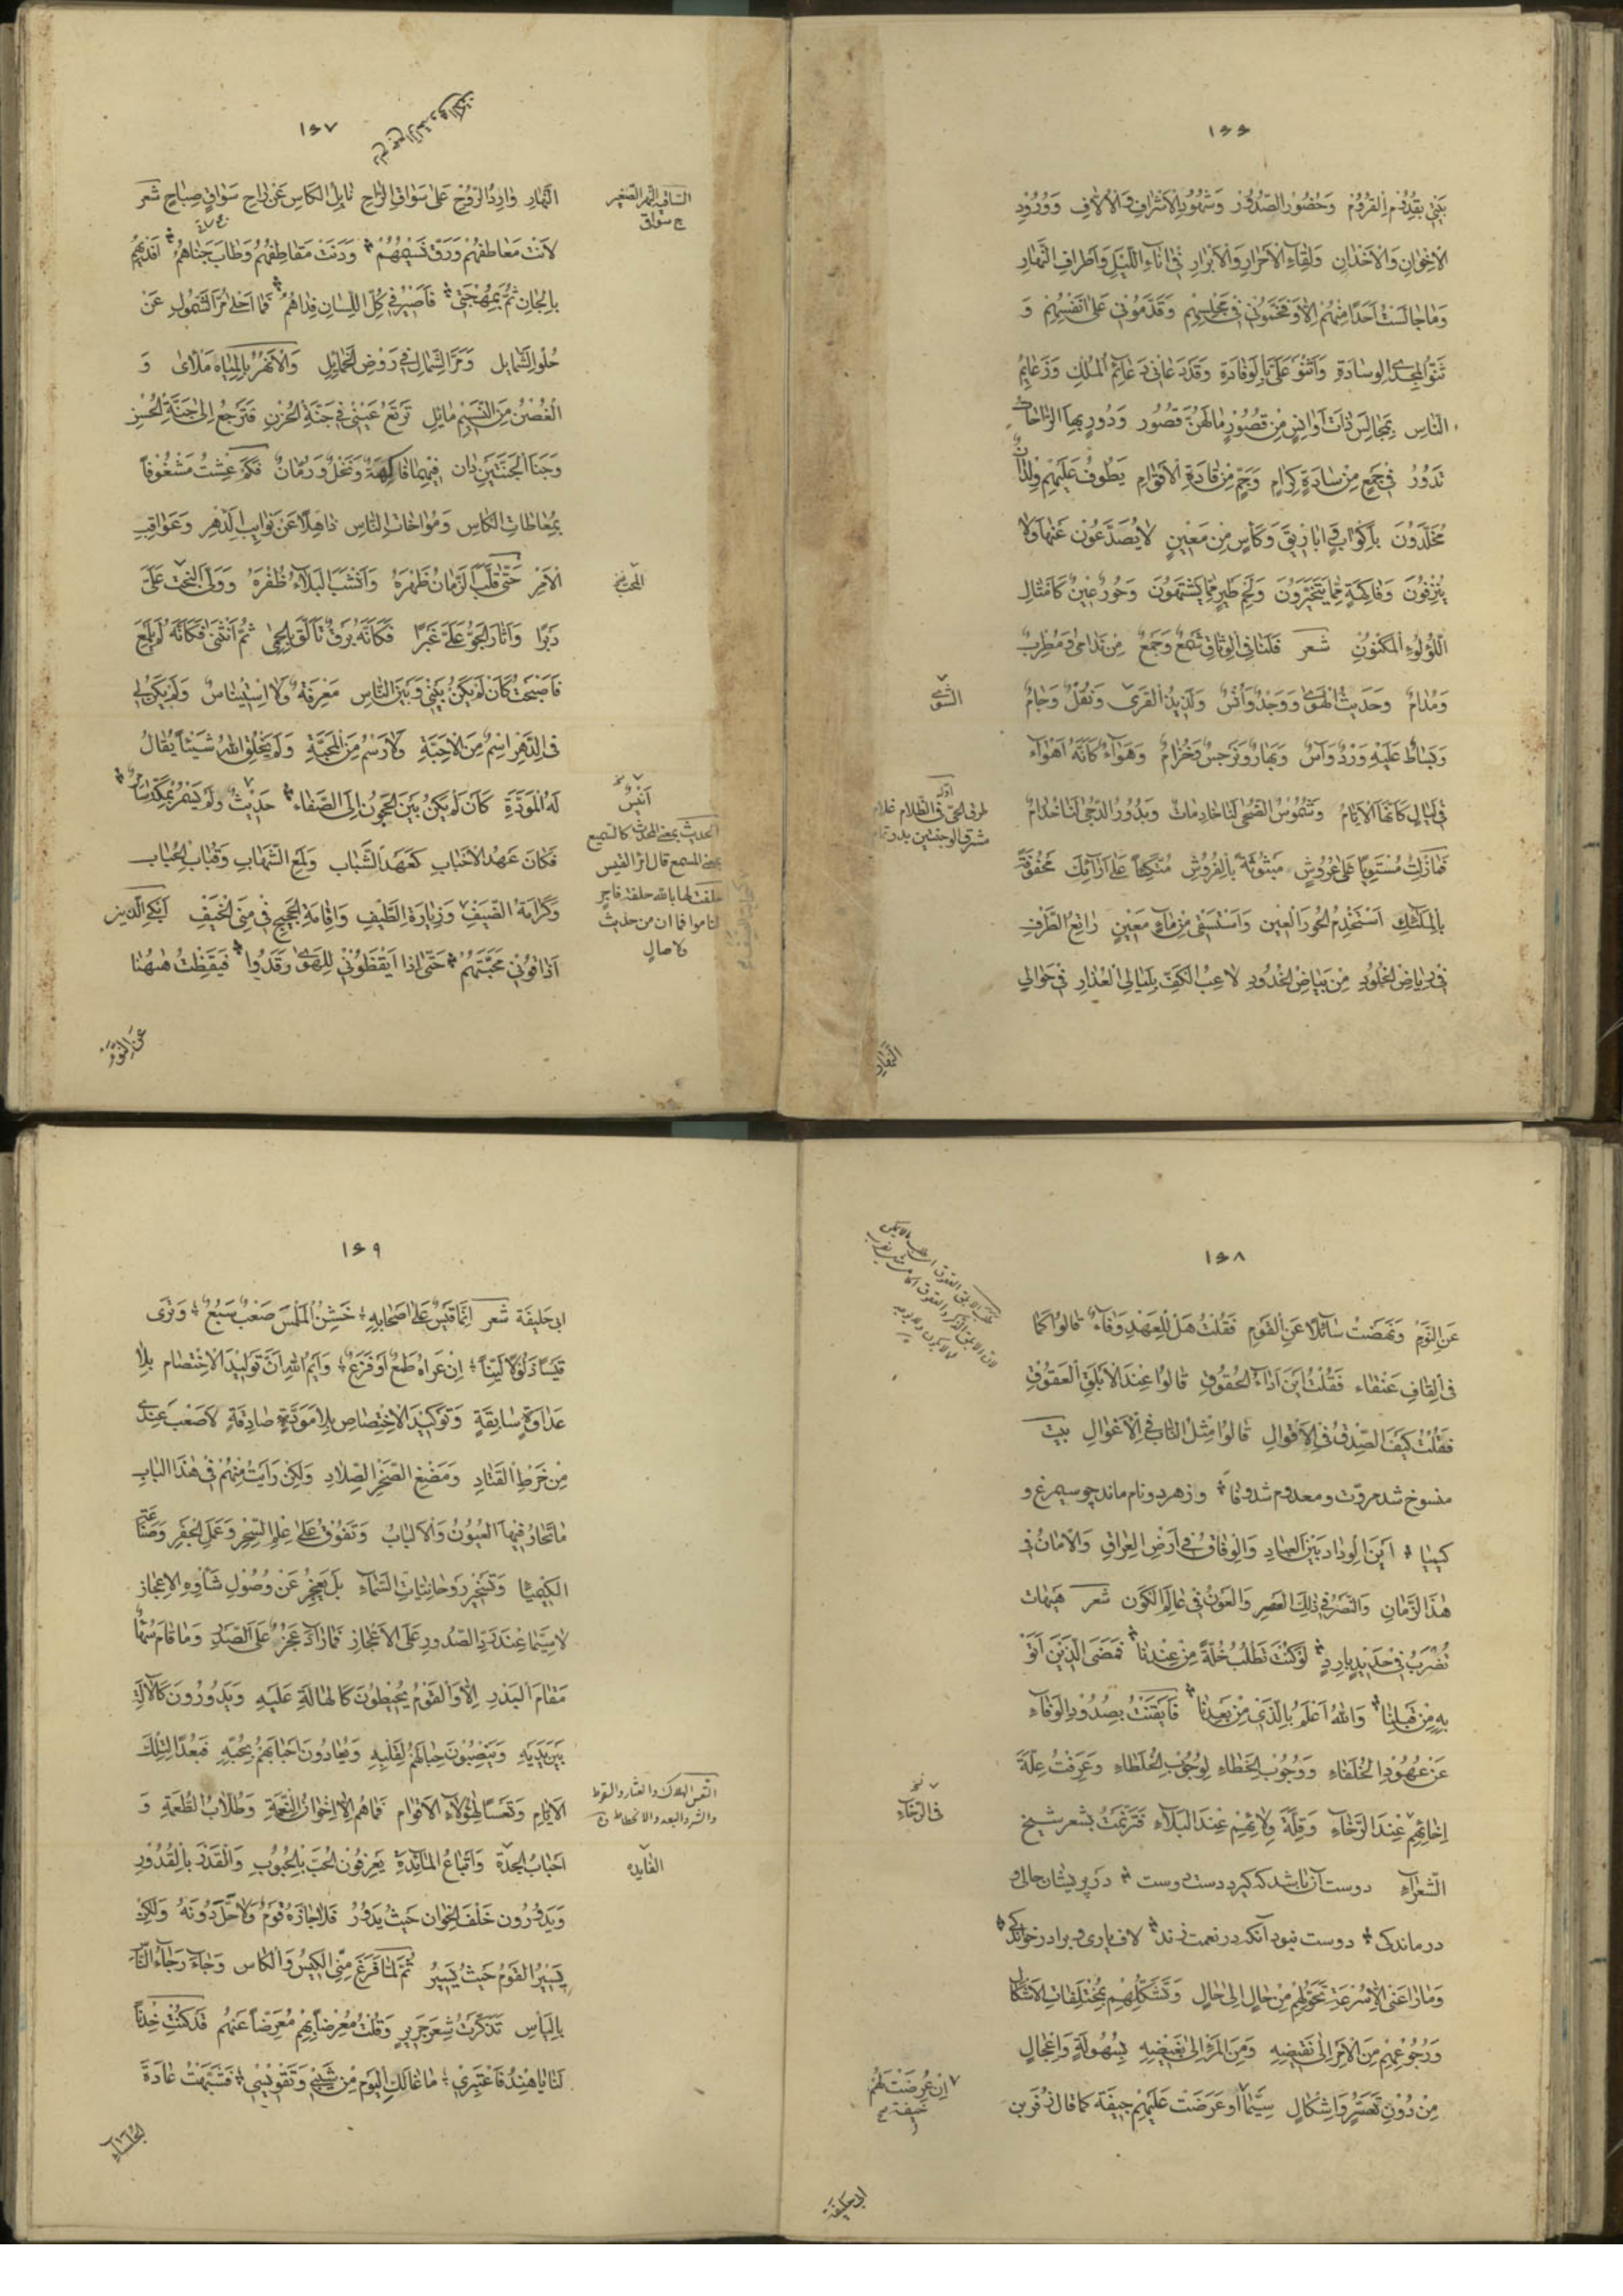 ١٦٦
بَيْتِي بِقُدُومِ الْقُرُومِ وَحُضُورِ الصُّدُورِ وَشُهُودِ الْأَشْرَافِ وَالْأُلَّافِ وَوُرُودِ
الْإِخْوَانِ وَالْأَخْدَانِ وَلِقَاءِ الْأَحْرَارِ وَالْأَبْرَارِ فِي آنَاءِ اللَّيْلِ وَأَطْرَافِ النَّهَارِ
وَمَا جَالَسْتُ أَحَدًا مِنْهُمْ إِلَّا وَفَخَّمُونِي فِي مَجْلِسِهِمْ وَقَدَّمُونِي عَلَى أَنْفُسِهِمْ وَ
ثَنَوْا لِمَجْدِي الْوِسَادَةَ وَأَثْنَوْا عَلَيَّ بِالْوِفَادَةِ وَقَدْ دَعَانِي دَعَائِمُ الْمُلْكِ وَزَعَايِمُ
النَّاسِ بِمَجَالِسَ ذَاتِ أَوَانِسٍ مِنْ قُصُورٍ مَا لَهُنَّ قُصُور وَدُورٍ بِهَا الرَّاحَاتُ
تَدُورُ فِي جَمْعٍ مِنْ سَادَةٍ كِرَامٍ وَجَمٍّ مِنْ قَادَةِ الْأَقْوَامِ يَطُوفُ عَلَيْهِمْ وِلْدَانٌ
مُخَلَّدُونَ بِأَكْوَابٍ وَأَبَارِيقَ وَكَأْسٍ مِنْ مَعِينٍ لَا يُصَدَّعُونَ عَنْهَا وَلَا
يُنْزِفُونَ وَفَاكِهَةٍ مِمَّا يَتَخَيَّرُونَ وَلَحْمِ طَيْرٍ مِمَّا يَشْتَهُونَ وَحُورٌ عِينٌ كَأَمْثَالِ
اللُّؤْلُؤِ الْمَكْنُونِ شعر فَلَنَا فِي الْوِثَاقِ شَمْعٌ وَجَمْعٌ مِنْ نَدَامَى وَمُطْرِبٌ
وَمُدَامٌ وَحَدِيثُ الْهَوَى وَوَجْدٌ وَأُنْسٌ وَلَذِيذُ الْقِرَى وَنُقْلٌ وَجَامٌ
وَبِسَاطٌ عَلَيْهِ وَرْدٌ وَآسٌ وَبَهَارٌ وَنَرْجِسٌ وَخُزَامٌ وَهَوَاءٌ كَأَنَّهُ أَهْوَاء
فِي لَيَالٍ كَأَنَّهَا الْأَيَّامُ وَشُمُوسُ الضُّحَى لَنَا خَادِمَات وَبُدُورُ الدُّجَى لَنَا خُدَّامٌ
فَمَا زِلْتُ مُسْتَوِيًا عَلَى عُرُوشٍ مَبْثُوثَةً بِالْفُرُوشِ مُتَّكِئًا عَلَى أَرَائِكَ مَحْفُوفَةً
بِالْمِسْكِ أَسْتَخْدِمُ الْحُورَ الْعِينَ وَأَسْتَسْقِي مِنْ مَاءٍ مَعِينٍ رَاتِعَ الطَّرْفِ
فِي رِيَاضِ الْخُلُودِ مِنْ بَيَاضِ الْخُدُودِ لَاعِبَ الْكَفِّ بِلَيَالِي الْعِذَارِ فِي حَوَالِي
النهار
الشوى
طرق الحى فى الظلام غلام
مشرق الوجنتين بدر تمام
١٦٧
النَّهَارِ وَارِدَ الرُّوحِ عَلَى سَوَاقِ الرَّاحِ نَايِلَ الْكَاسِ عَنْ رَاحِ سَوَاقٍ صِبَاحٍ شعر
لَانَتْ مَعَاطِفُهُمْ وَرَقَّ نَسِيمُهُمْ وَدَنَتْ مَقَاطِفُهُمْ وَطَابَ جَنَاهُمُ أَفْدِيهُمُ
بِالْجَانِ ثُمَّ بِمُهْجَتِي فَأَصْبُرْ فِي كُلِّ اللِّسَانِ فِدَاهُمُ فَمَا أَحْلَى مُرَّ الشَّمُولِ عَنْ
حُلْوِ الشَّمَايِلِ وَمَرَّ الشِّمَالِ فِي رَوْضِ الْخَمَايِلِ وَالْأَنْهُرُ بِالْمِيَاهِ مَلْأَى وَ
الْغُصْنُ مِنَ النَّسِيمِ مَايِلٌ تَرْتَعُ عَيْنِي فِي جَنَّةِ الْحُزْنِ فَتَرْجِعُ إِلَى جَنَّةِ الْحُسْنِ
وَجَنَا الْجَنَّتَيْنِ دَان فِيهِمَا فَاكِهَةٌ وَنَخْلٌ وَرُمَّانٌ فَكَمْ عِشْتُ مَشْغُوفًا
بِمُعَاطَاتِ الْكَاسِ وَمُوَاخَاتِ النَّاسِ ذَاهِلًا عَنْ نَوَايِبِ الدَّهْرِ وَعَوَاقِبِ
الْأَمْرِ حَتَّى قَلَبَ الزَّمَانُ ظَهْرَهُ وَأَنْشَبَ الْبَلَاءُ ظُفْرَهُ وَوَلَّى الْبَخْتُ عَلَيَّ
دَبْرًا وَأَثَارَ الْجَوُّ عَلَيَّ غَبَرًا فَكَأَنَّهُ بَرْقٌ تَأَلَّقَ بِالْحِمَى ثُمَّ انْثَنَى فَكَأَنَّهُ لَمْ يَلْمَعِ
فَأَصْبَحْتُ كَأَنْ لَمْ يَكُنْ بَيْنِي وَبَيْنَ النَّاسِ مَعْرِفَةٌ وَلَا اسْتِينَاسٌ وَلَمْ يَكُنْ لِي
فِي الدَّهْرِ اسْمٌ مِنَ الْأَحِبَّةِ وَلَا رَسْمٌ مِنَ الْمَحَبَّةِ وَلَمْ يَخْلُقِ اللهُ شَيْئًا يُقَالُ
لَهُ الْمَوَدَّةُ كَأَنْ لَمْ يَكُنْ بَيْنَ الْحَجُونِ إِلَى الصَّفَاء حَدِيثٌ وَلَمْ يَسْمُرْ بِمَكَّةَ سَامِرٌ
فَكَانَ عَهْدُ الْأَحْبَابِ كَعَهْدِ الشَّبَابِ وَلَمْعِ الشَّهَابِ وَقِبَابِ الْحُبَاب
وَكَرَامَةِ الضَّيْفِ وَزِيَارَةِ الطَّيْفِ وَإِقَامَةِ الْحَجِيجِ فِي مِنَى الْخَيْفِ أَبْكِي الَّذِينَ
أَذَاقُونِي مَحَبَّتَهُمْ حَتَّى إِذَا أَيْقَظُونِي لِلْهَوَى رَقَدُوا فَيَقَظْتُ هٰهُنَا
عن النوم
الساقية النهر الصغير
ج سواقي
أنيس
الحديث بمعنى المحدث كالسميع
بمعنى المسمع قال امرؤ القيس
حلفت لها بالله حلفة فاجر
لناموا فما ان من حديث
ولا صال
١٦٨
عَنِ النَّوْمِ وَنَهَضْتُ سَائِلًا عَنِ الْقَوْمِ فَقُلْتُ هَلْ لِلْعَهْدِ وَفَاءٌ قَالُوا كَمَا
فِي الْقَافِ عَنْقَاء فَقُلْتُ أَيْنَ أَدَاءُ الْحُقُوقِ قَالُوا عِنْدَ الْأَبْلَقِ الْعَقُوقِ
فَقُلْتُ كَيْفَ الصِّدْقُ فِي الْأَقْوَالِ قَالُوا مِثْلُ النَّابِ فِي الْأَغْوَالِ بيت
منسوخ شد مروّت ومعدوم شد وفا وز هر دو نام ماند چو سیمرغ و
كیمیا أَيْنَ الْوِدَادُ بَيْنَ الْعِبَادِ وَالْوِفَاقُ فِي أَرْضِ الْعِرَاقِ وَالْأَمَانُ فِي
هٰذَا الزَّمَانِ وَالنَّصْرُ فِي ذٰلِكَ الْعَصْرِ وَالْعَوْنُ فِي عَالَمِ الْكَوْنِ شعر هَيْهَاتَ
تُضْرَبُ فِي حَدِيدٍ بَارِدٍ لَوْ كُنْتَ تَطْلُبُ خُلَّةً مِنْ عِنْدِنَا فَمَضَى الَّذِينَ أَتَوْا
بِهِ مِنْ قَبْلِنَا وَاللهُ أَعْلَمُ بِالَّذِي مِنْ بَعْدِنَا فَأَيْقَنْتُ بِصُدُودِ الْوَفَاءِ
عَنْ عُهُودِ الْخُلَفَاءِ وَوُجُوبِ الْخَطَاءِ لِوُجُوبِ الْخُلَطَاءِ وَعَرَفْتُ عِلَّةَ
إِخَائِهِمْ عِنْدَ الرَّخَاءِ وَقِلَّةَ وِلَائِهِمْ عِنْدَ الْبَلَاءِ فَتَرَنَّمْتُ بِشِعْرِ شَيْخِ
الشُّعَرَاءِ دوست آن باشد كه گیرد دست دوست در پریشان حالی و
درماندگی دوست نبود آنكه در نعمت زند لاف یاری و برادر خواندگی
وَمَا رَاعَنِي إِلَّا سُرْعَةُ تَحَوُّلِهِمْ مِنْ حَالٍ إِلَى حَالٍ وَتَشَكُّلِهِمْ بِمُخْتَلِفَاتِ الْأَشْكَالِ
وَرُجُوعِهِمْ مِنَ الْأَمْرِ إِلَى نَقِيضِهِ وَمِنَ الْمَرْءِ إِلَى بَغِيضِهِ بِسُهُولَةٍ وَإِعْجَالٍ
مِنْ دُونِ تَعَسُّرٍ وَإِشْكَالٍ سِيَّمَا أَوْ عَرَضَتْ عَلَيْهِمْ جِيفَة كَمَا قَالَ زُفَرُ بْن
ابى خليفة
فى الرخاء
ان عرضت لهم
جيفة
١٦٩
ابى خَلِيفَة شعر إِنَّمَا قَيْسٌ عَلَى أَصْحَابِهِ خَشِنُ الْمَلْمَسِ صَعْبٌ سَبُعٌ وَتَرَى
قَيْسًا ذَلُولًا لَيِّنًا إِنْ عَرَاهُ طَمَعٌ أَوْ فَزَعٌ وَايْمُ اللهِ إِنَّ تَوْلِيدَ الْاخْتِصَامِ بِلَا
عَدَاوَةٍ سَابِقَةٍ وَتَوْكِيدَ الْاخْتِصَاصِ بِلَا مَوَدَّةٍ صَادِقَةٍ لَأَصْعَبُ عِنْدِي
مِنْ خَرْطِ الْقَتَادِ وَمَضْغِ الصَّخْرِ الصِّلَادِ وَلَكِنْ رَأَيْتُ مِنْهُمْ فِي هٰذَا الْبَابِ
مَا تَحَارُ فِيهَا الْعُيُونُ وَالْأَلْبَابُ وَتَفُوقُ عَلَى عِلْمِ السِّحْرِ وَعَمَلِ الْجَفْرِ وَصَنْعَةِ
الْكِيمِيَا وَتَسْخِيرِ رُوحَانِيَّاتِ السَّمَاءِ بَلْ يَعْجِزُ عَنْ وُصُولِ شَأْوِهِ الْإِعْجَازُ
لَا سِيَّمَا عِنْدَ رَدِّ الصُّدُورِ عَلَى الْأَعْجَازِ فَمَا زَادَ عَجْزٌ عَلَى الصَّدْرِ وَمَا قَامَ سُهًا
مَقَامَ الْبَدْرِ إِلَّا وَالْقَوْمُ يُحِيطُونَ كَالْهَالَةِ عَلَيْهِ وَيَدُورُونَ كَالْآلَةِ
بَيْنَ يَدَيْهِ وَيَنْصِبُونَ حِبَالَهُمْ لِقَلْبِهِ وَيُعَادُونَ أَحْبَابَهُمْ بِحُبِّهِ فَبُعْدًا لِتِلْكَ
الْأَيَّامِ وَتَعْسًا لِهٰؤُلَاءِ الْأَقْوَام فَمَا هُمْ إِلَّا إِخْوَانُ النِّعْمَةِ وَطُلَّابُ الطُّعْمَةِ وَ
أَحْبَابُ الْجِدَةِ وَأَتْبَاعُ الْمَائِدَةِ يَعْرِفُونَ الْحُبَّ بِالْحُبُوبِ وَالْقَدْرَ بِالْقُدُورِ
وَيَدُورُونَ خَلْفَ الْخِوَانِ حَيْثُ يَدُورُ فَلَا جَازَهُ قَوْمٌ وَلَا حَلَّ دُونَهُ وَلَكِنْ
يَسِيرُ الْقَوْمُ حَيْثُ يَسِيرُ ثُمَّ لَمَّا فَرَغَ مِنِّي الْكِيسُ وَالْكَاس وَجَاءَ رَجَاءُ النَّاسِ
بِالْيَاسِ تَذَكَّرْتُ شِعْرَ جَرِيرٍ وَقُلْتُ مُعْرِضًا بِهِمْ مُعْرِضًا عَنْهُمْ قَدْ كُنْتِ خِدْنًا
لَنَا يَا هِنْدُ فَاعْتَبِرِي مَا غَالَكِ الْيَوْمَ مِنْ شَيْبِي وَتَقْوِيسِي فَتَشَبَّهْتُ عَادَةَ
التعس الهلاك والعثار والسقوط
والشر والبعد والانحطاط
الفايده